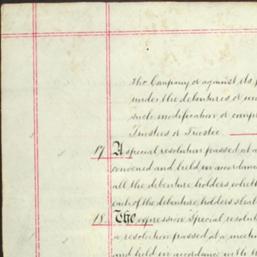 The Company or against its
under the debentures or
such modification or
Trustees or Trustee
17 A special resolution passed at a
convened and held in accordance
all the debenture holders
each of the debenture holders shall
18 The expression Special resolut
a resolution passed at a meet
and held in accordance with th